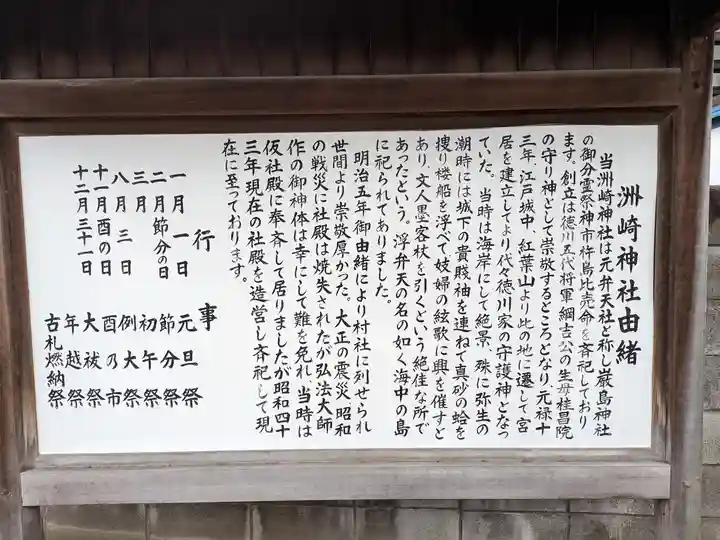 洲崎神社由緒
当洲崎神社は元弁天社と称し厳島神社
の御分霊祭神市杵島比売命を斉祀しており
ます。創立は徳川五代将軍綱吉公の生母桂昌院
の守り神として崇敬するところとなり、元禄十
三年、江戸城中、紅葉山より此の地に遷して宮
居を建立してより代々徳川家の守護神となっ
ていた。当時は海岸にして絶景、殊に弥生の
潮時には城下の貴賤袖を連ねて真砂の蛤を
捜り楼船を浮べて妓婦の絃歌に興を催すと
あり、文人墨客杖を引くという絶佳な所で
あったという。浮弁天の名の如く海中の島
に祀られてありました。
明治五年御由緒により村社に列せられ
世間より崇敬厚かった。大正の震災、昭和
の戦災に社殿は焼失されたが弘法大師
作の御神体は幸にして難を免れ、当時は
仮社殿に奉斉して居りましたが昭和四十
三年現在の社殿を造営し斉祀して現
在に至っております。
行事
一月一日 元旦祭
二月節分の日 節分祭
三月 初午祭
八月三日 例大祭
十一月酉の日 酉の市
十二月三十一日 大祓祭
年越祭
古札燃納祭